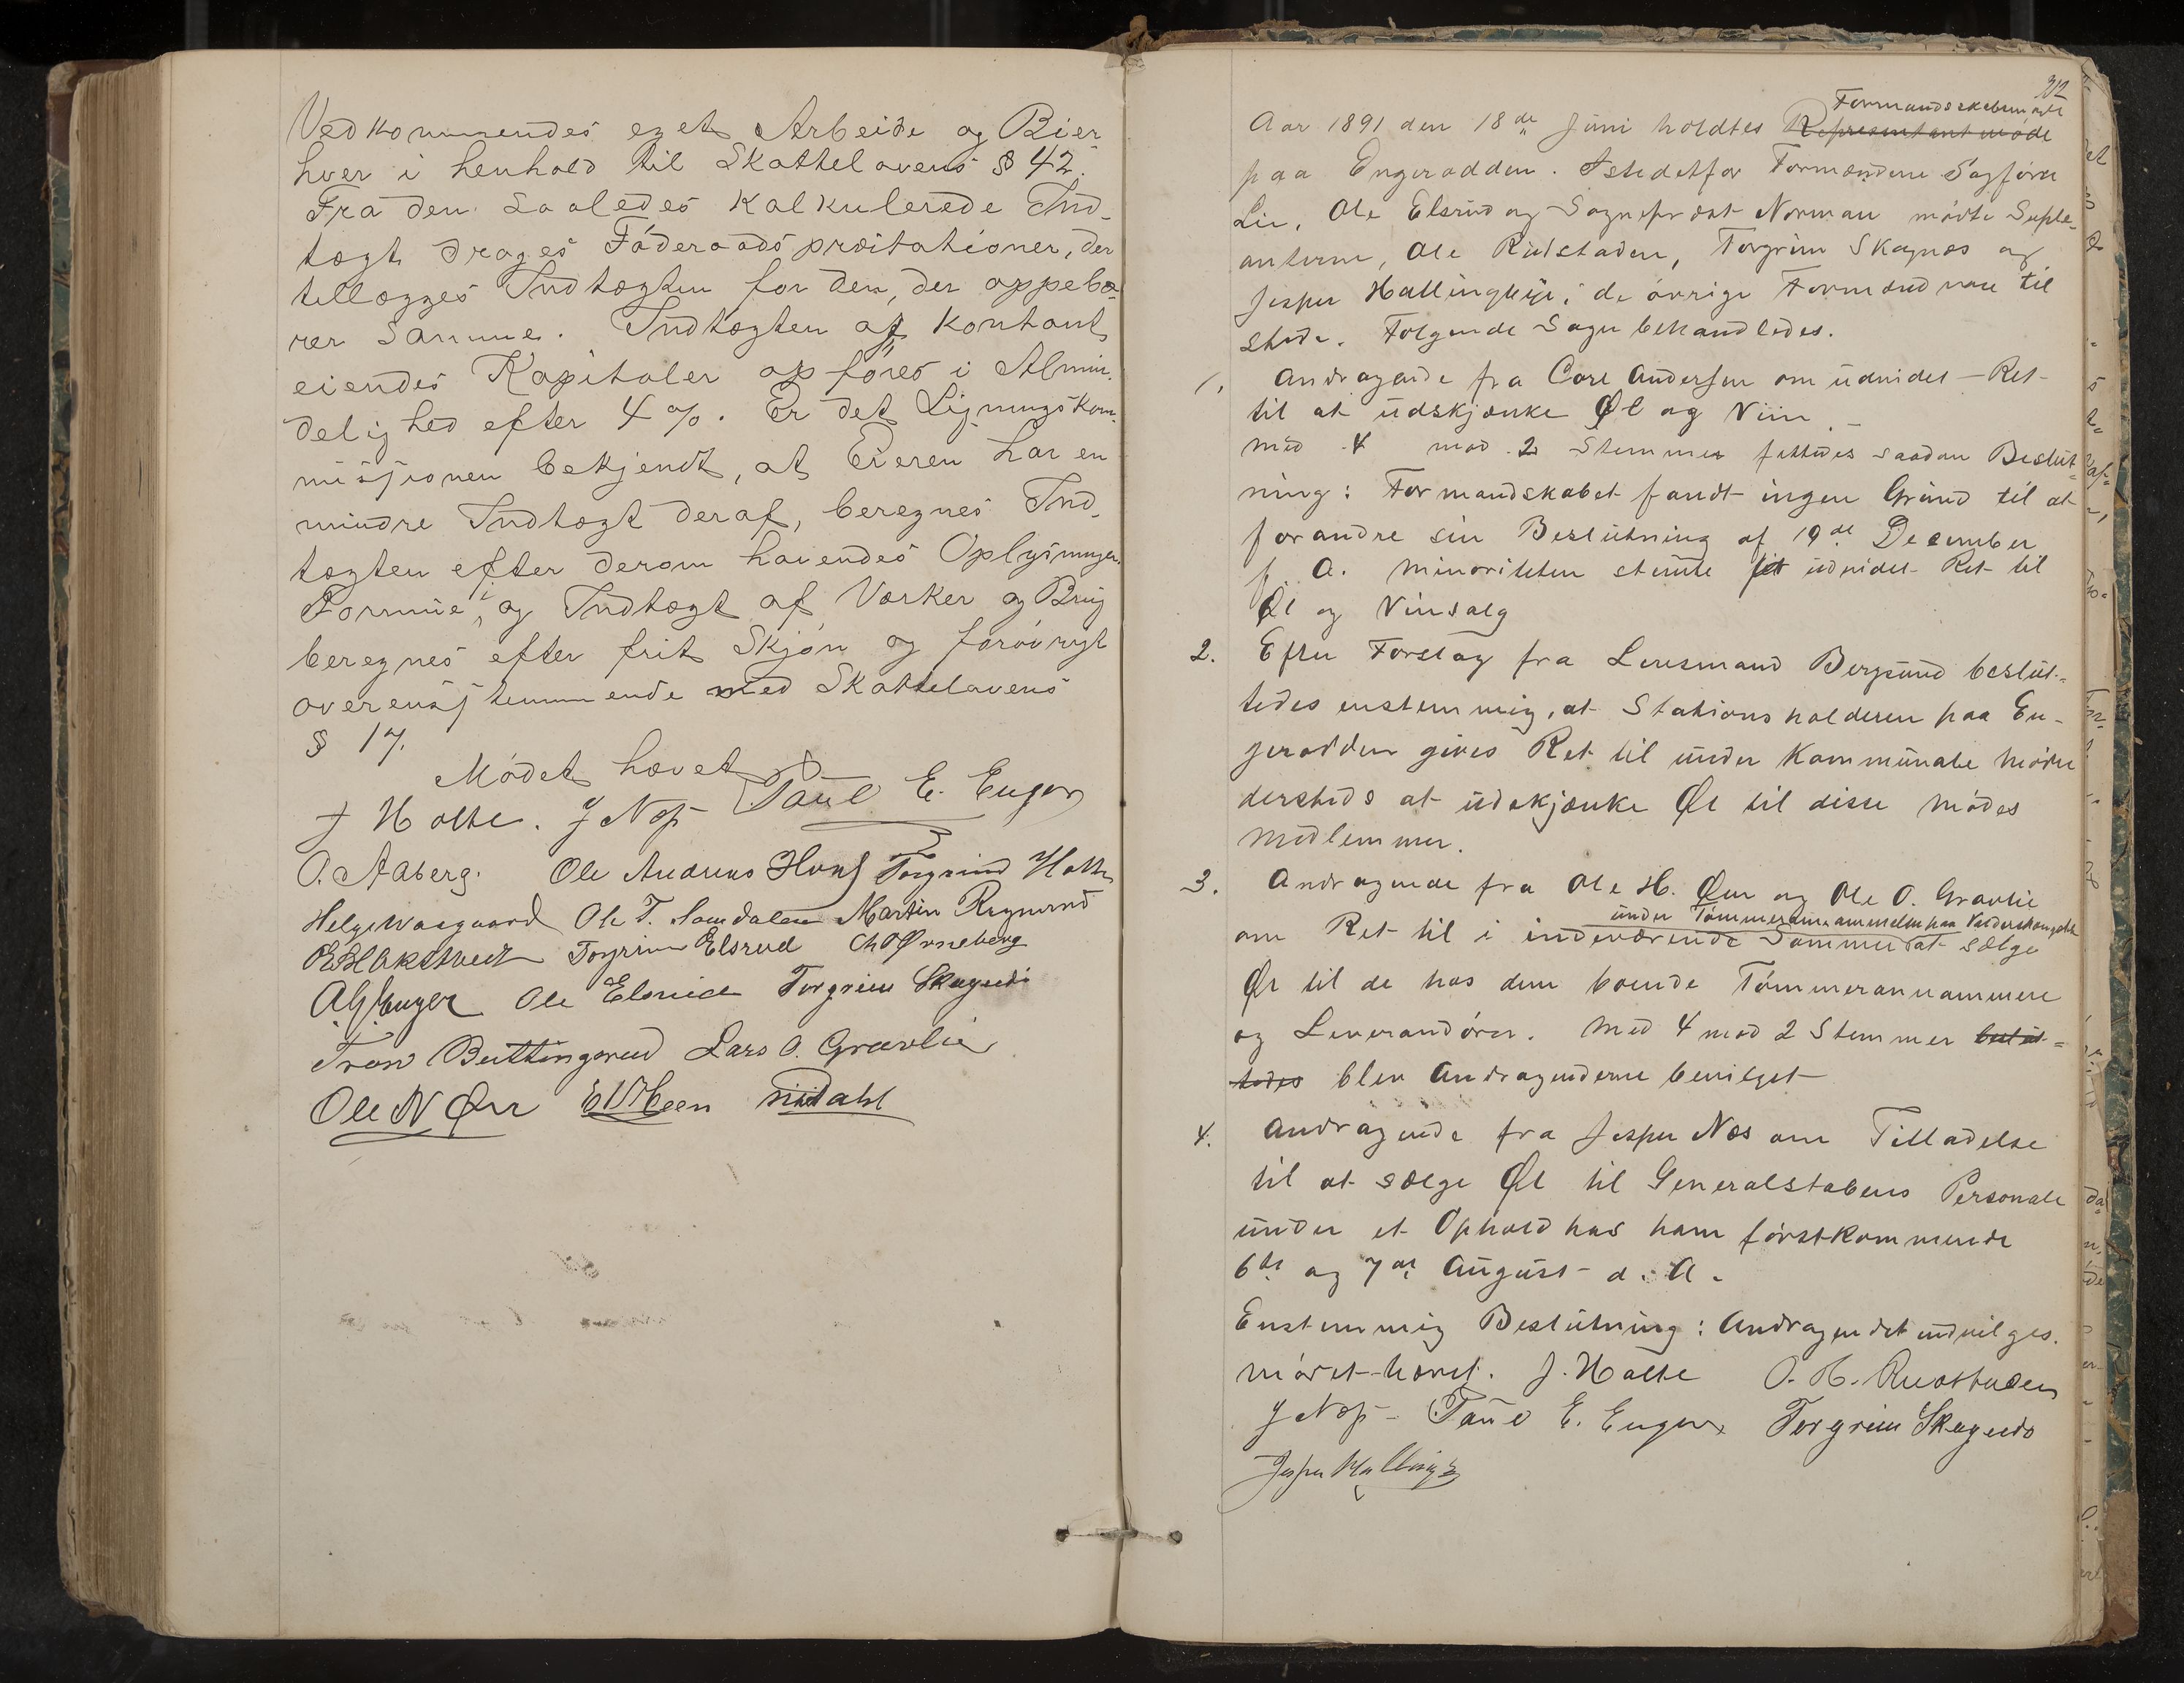 Vedkommendes eget Arbeide og Bier-
hver i henhold til Skattelovens § 42.
Fra den saaledes kalkulerede Ind-
tægt drages Föderaadspræstationer, der
tillægges Indtægten for den, der oppebæ-
rer samme. Indtægten af kontant
eiendes Kapitaler opföres i Almin-
delighed efter 4 %. Er det Ligningskom-
missjonen bekjendt, at Eieren har en
mindre Indtægt deraf, beregnes Ind-
tægten efter derom havendes Oplysninger.
Formue, og Indtægt af Værker og Brug
beregnes efter frit Skjön og forövrigt
overensstemmende med Skattelovens
§ 17.
Mödet hævet
J Holte. J Næs Paul E. Enger
O. Aaberg. Ole Andreas Torgrim Holte
Helge Ole T. Martin
Torgrim Elsrud Ch Ørneberg
A G Enger Ole Elsrud Torgrim Skagnæs
Tron Buttingsrud Lars O. Gravlie
Ole N Ørr Dahl
312
Formandsskabsmöde
Aar 1891 den 18de Juni holdtes Repræsentantmöde
paa Engerodden. Istedetfor Formændene Sagförer
Lie, Ole Elsrud og Sogneprest Norman mödte Supple-
anterne, Ole Rustaden, Torgrim Skagnæs og
Jesper Hallingbye; de övrige Formænd vare til
stede. Følgende Sager behandledes.
1. Andragende fra Carl Andersen om udvidet Ret
til at udskjænke Øl og Viin. –
Med 4 mod 2 Stemmer fattedes saadan Beslut-
ning: Formandskabet fandt ingen Grund til at
forandre sin Beslutning af 19de December
f. A. Minoriteten stemte for udvidet Ret til
Øl og Vinsalg
2. Efter Forslag fra Lensmand Bergsund beslut-
tedes enstemmig, at Stationsholderen paa En-
gerodden gives Ret til under Kommunale Möder
dersteds at udskjænke Øl til disse Mödes
Medlemmer.
3. Andragende fra Ole H. Ørr og Ole O. Gravlie
under Tömmerannammelsen paa
om Ret til i indeværende Sommer at sælge
Øl til de hos dem boende Tömmerannammere
og Leverandörer. Med 4 mod 2 Stemmer beslut-
tedes blev Andragenderne bevilget
4. Andragende fra Jesper Næs om Tilladelse
til at sælge Øl til Generalstabens Personale
under et Ophold hos ham förstkommende
6te og 7de August d. A.
Enstemmig Beslutning: Andragendet indvilges.
Mödet hævet. J. Holte O. H. Rustaden
J Næs – Paul E. Enger Torgrim Skagnæs
Jesper Hallingby